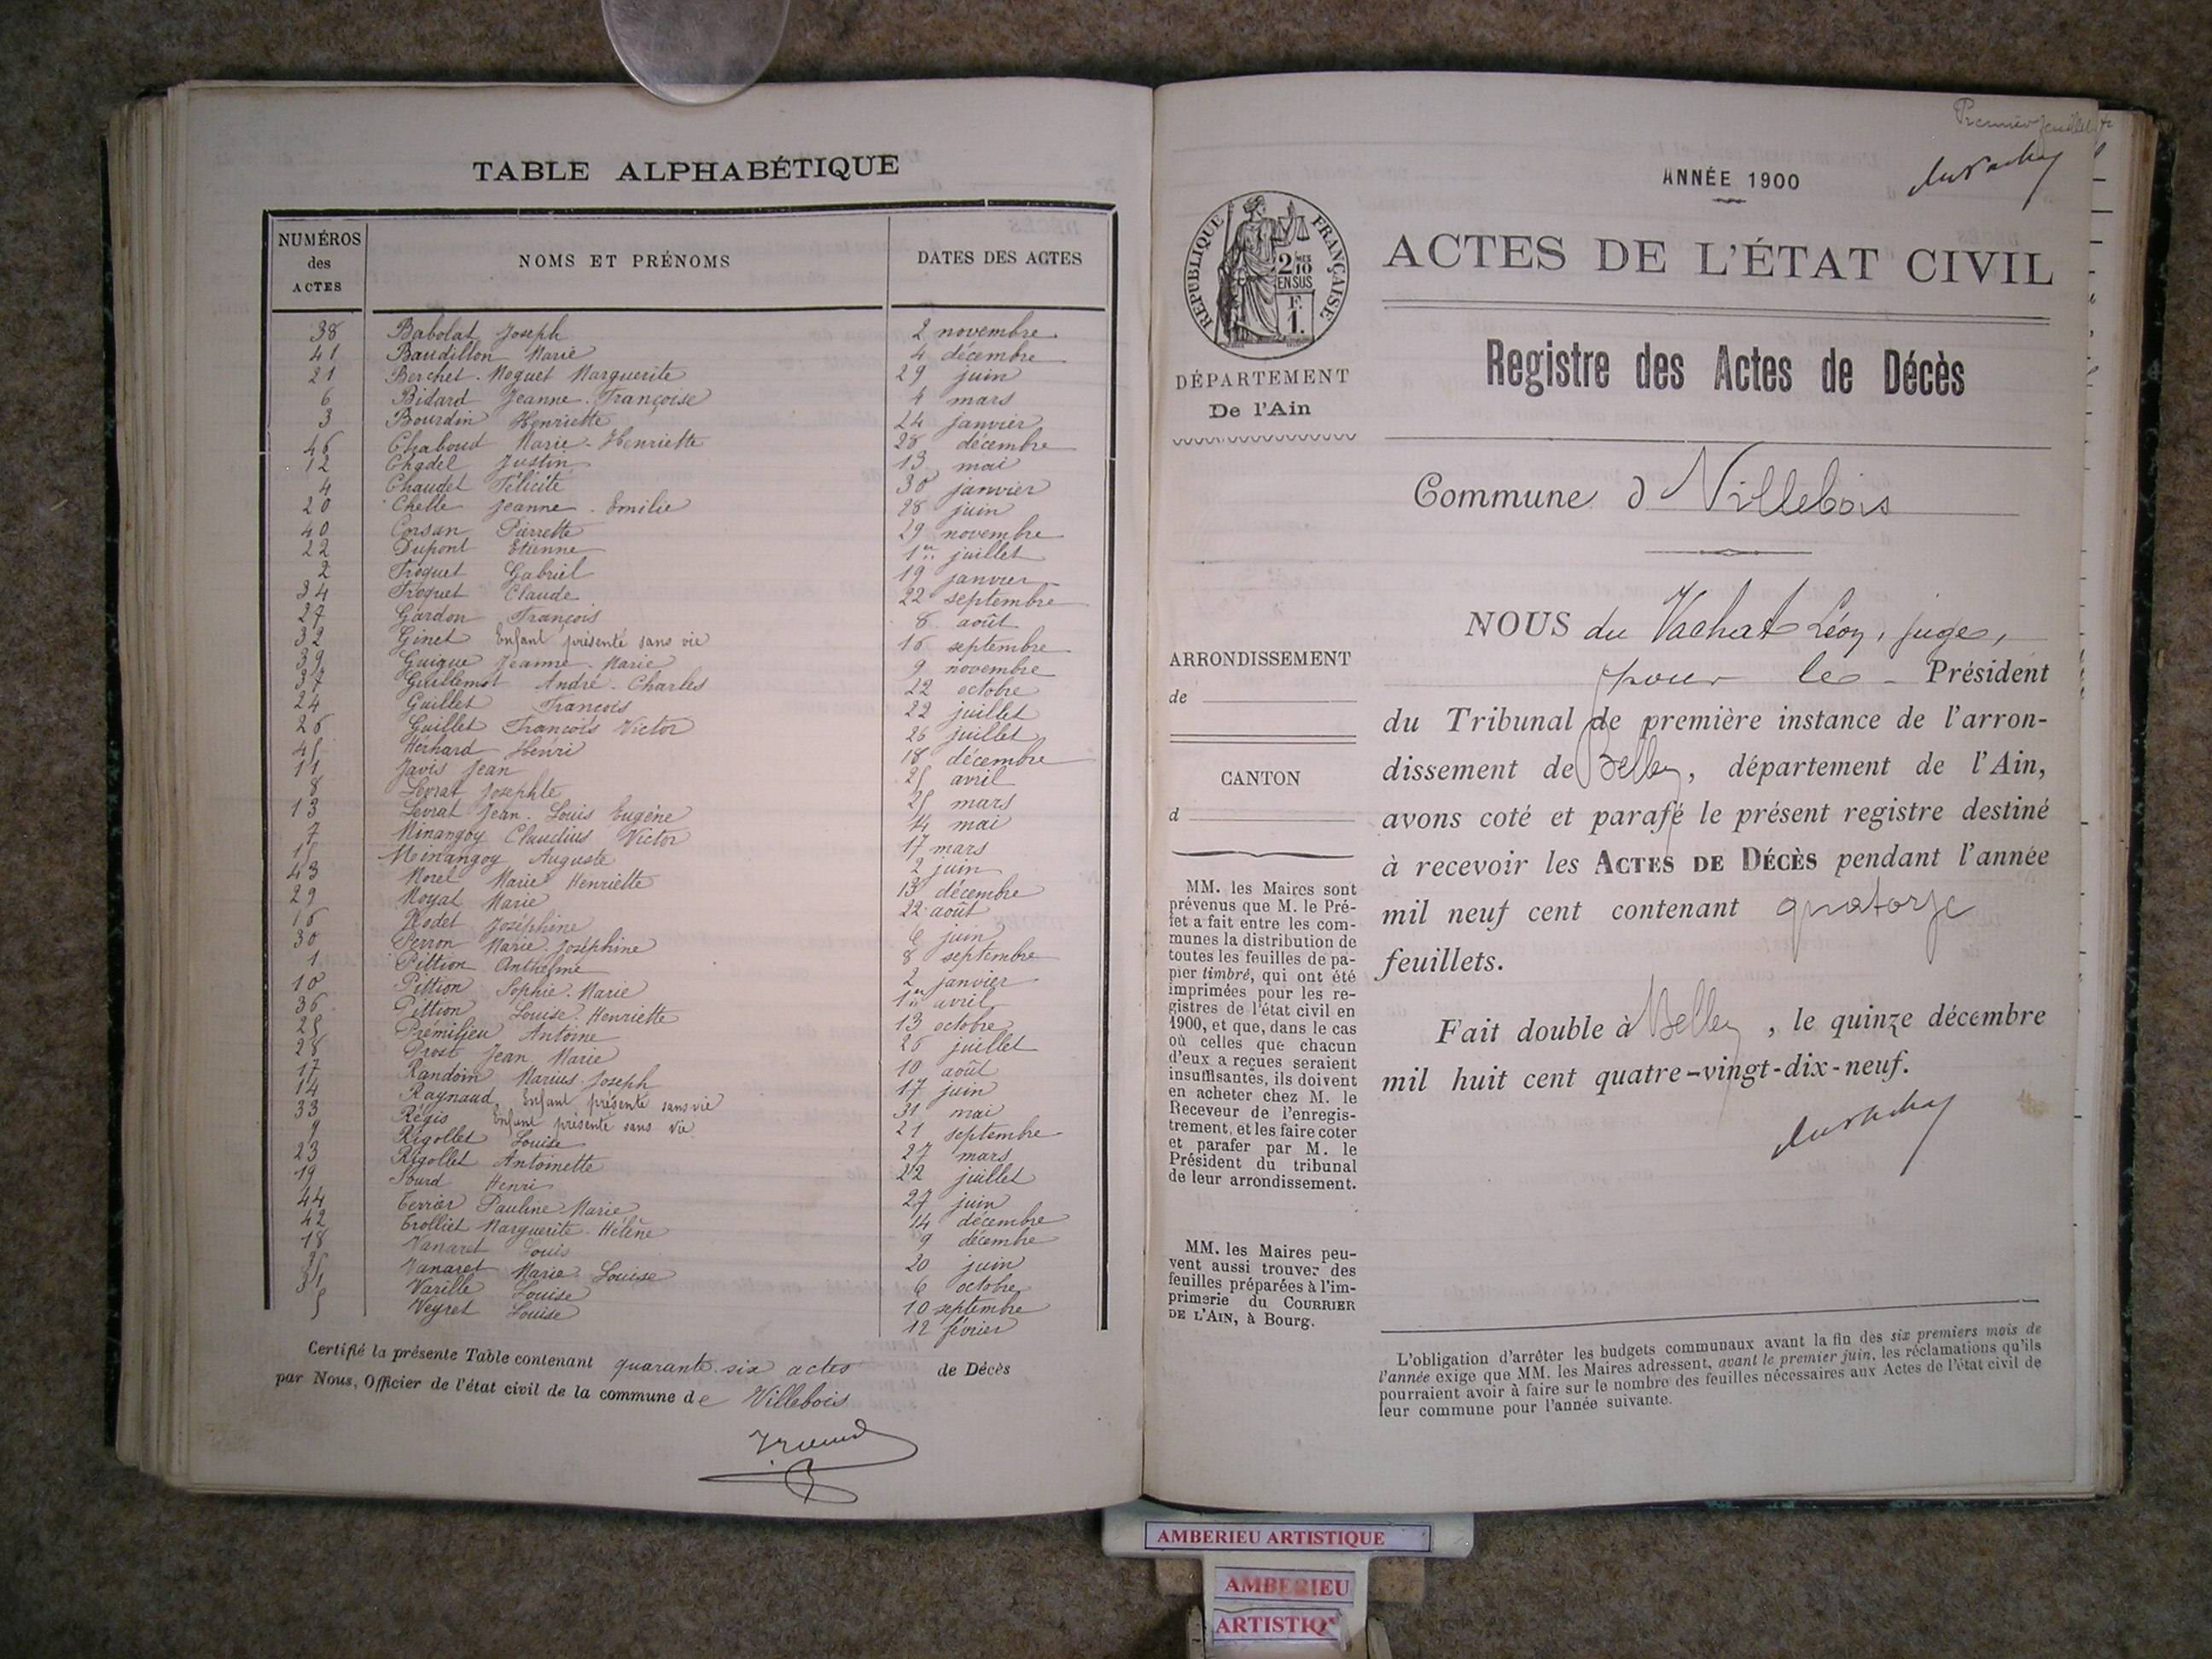 TABLE ALPHABÉTIQUE
NUMÉROS des ACTES NOMS ET PRÉNOMS DATES DES ACTES
38 Babolat Joseph 2 novembre
41 Baudillon Marie 4 décembre
21 Berchet-Moguet Marguerite 29 juin
6 Bidard Jeanne-Françoise 4 mars
3 Bourdin Henriette 24 janvier
46 Chaboud Marie-Henriette 28 décembre
12 Chadel Justin 13 mai
4 Chaudet Félicité 30 janvier
20 Chelle Jeanne-Emilie 28 juin
40 Corsan Pierrette 29 novembre
22 Dupont Etienne 1er juillet
2 Froquet Gabriel 19 janvier
34 Froquet Claude 22 septembre
27 Gardon François 8 août
32 Ginet Enfant présenté sans vie 16 septembre
39 Guigue Jeanne-Marie 9 novembre
37 Guillemot André-Charles 22 octobre
24 Guillet François 22 juillet
26 Guillet François Victor 26 juillet
45 Herhard Henri 18 décembre
11 Javis Jean 25 avril
8 Levrat Josephte 25 mars
13 Levrat Jean-Louis Eugène 14 mai
7 Minangoy Claudius Victor 17 mars
15 Minangoy Auguste 2 juin
43 Morel Marie Henriette 13 décembre
29 Moyat Marie 22 août
16 Nodet Joséphine 6 juin
30 Perron Marie-Joséphine 8 septembre
1 Pittion Anthelme 2 janvier
10 Pittion Sophie-Marie 1er avril
36 Pittion Louise-Henriette 13 octobre
25 Prémilieu Antoine 26 juillet
28 Prost Jean Marie 10 août
17 Randoin Marius-Joseph 17 juin
14 Raynaud Enfant présenté sans vie 31 mai
33 Régis Enfant présenté sans vie 21 septembre
9 Rigollet Louise 27 mars
23 Rigollet Antoinette 22 juillet
19 Sourd Henri 27 juin
44 Terrier Pauline-Marie 14 décembre
42 Trolliet Marguerite-Hélène 9 décembre
18 Vanaret Louis 20 juin
35 Vanaret Marie-Louise 6 octobre
31 Varille Louise 10 septembre
5 Veyret Louise 12 février
Certifié la présente Table contenant quarante-six actes de Décès
par Nous, Officier de l'état civil de la commune de Villebois
Premier feuillet
duVachat
ANNÉE 1900
RÉPUBLIQUE FRANÇAISE
2 10MES EN SUS
F. 1.
ACTES DE L'ÉTAT CIVIL
DÉPARTEMENT
De l'Ain
Registre des Actes de Décès
Commune d Villebois
NOUS du Vachat Léon, juge,
pour le Président
du Tribunal de première instance de l'arron-
dissement de Belley, département de l'Ain,
avons coté et parafé le présent registre destiné
à recevoir les ACTES DE DÉCÈS pendant l'année
mil neuf cent contenant quatorze
feuillets.
Fait double à Belley, le quinze décembre
mil huit cent quatre-vingt-dix-neuf.
duVachat
ARRONDISSEMENT
de
CANTON
d
MM. les Maires sont
prévenus que M. le Pré-
fet a fait entre les com-
munes la distribution de
toutes les feuilles de pa-
pier timbré, qui ont été
imprimées pour les re-
gistres de l'état civil en
1900, et que, dans le cas
où celles que chacun
d'eux a reçues seraient
insuffisantes, ils doivent
en acheter chez M. le
Receveur de l'enregis-
trement, et les faire coter
et parafer par M. le
Président du tribunal
de leur arrondissement.
MM. les Maires peu-
vent aussi trouver des
feuilles préparées à l'im-
primerie du COURRIER
DE L'AIN, à Bourg.
L'obligation d'arrêter les budgets communaux avant la fin des six premiers mois de
l'année exige que MM. les Maires adressent, avant le premier juin, les réclamations qu'ils
pourraient avoir à faire sur le nombre des feuilles nécessaires aux Actes de l'état civil de
leur commune pour l'année suivante.
AMBERIEU ARTISTIQUE
AMBERIEU
ARTISTIQ